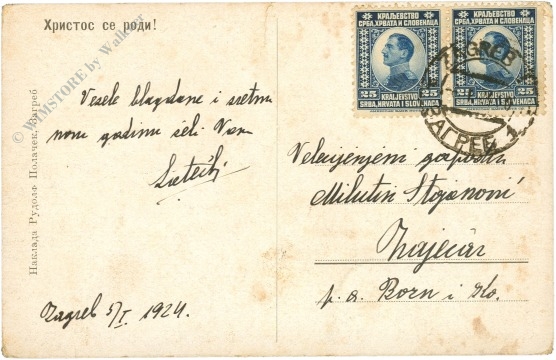 Христос се роди!
Vesele blagdane i sretnu
novu godinu želi Vam
Zagreb 5/I. 1924.
Наклада Рудолф Полачек, Загреб
© WAMSTORE by Walker
КРАЉЕВСТВО
СРБА, ХРВАТА И СЛОВЕНАЦА
25 25
KRALJEVSTVO
SRBA, HRVATA I SLOVENACA
КРАЉЕВСТВО
СРБА, ХРВАТА И СЛОВЕНАЦА
25 25
KRALJEVSTVO
SRBA, HRVATA I SLOVENACA
ZAGREB
ЗАГРЕБ 1
Velecijenjeni gospodin
Milutin Stojanović
Zaječar
p. a. Born i Ko.